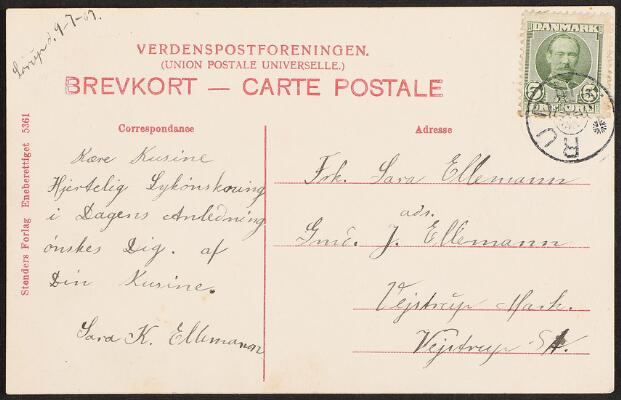 d. 9-7-07.
VERDENSPOSTFORENINGEN.
(UNION POSTALE UNIVERSELLE.)
BREVKORT — CARTE POSTALE
DANMARK
5 ØRE 5
Correspondanse
Adresse
Kære Kusine
Hjertelig Lykønskning
i Dagens Anledning
ønskes Dig. af
Din Kusine.
Sara K. Ellemann
Frk. Sara Ellemann
adr.
Gmd. J. Ellemann
Vejstrup Mark.
Vejstrup St.
Stenders Forlag Eneberettiget 5361